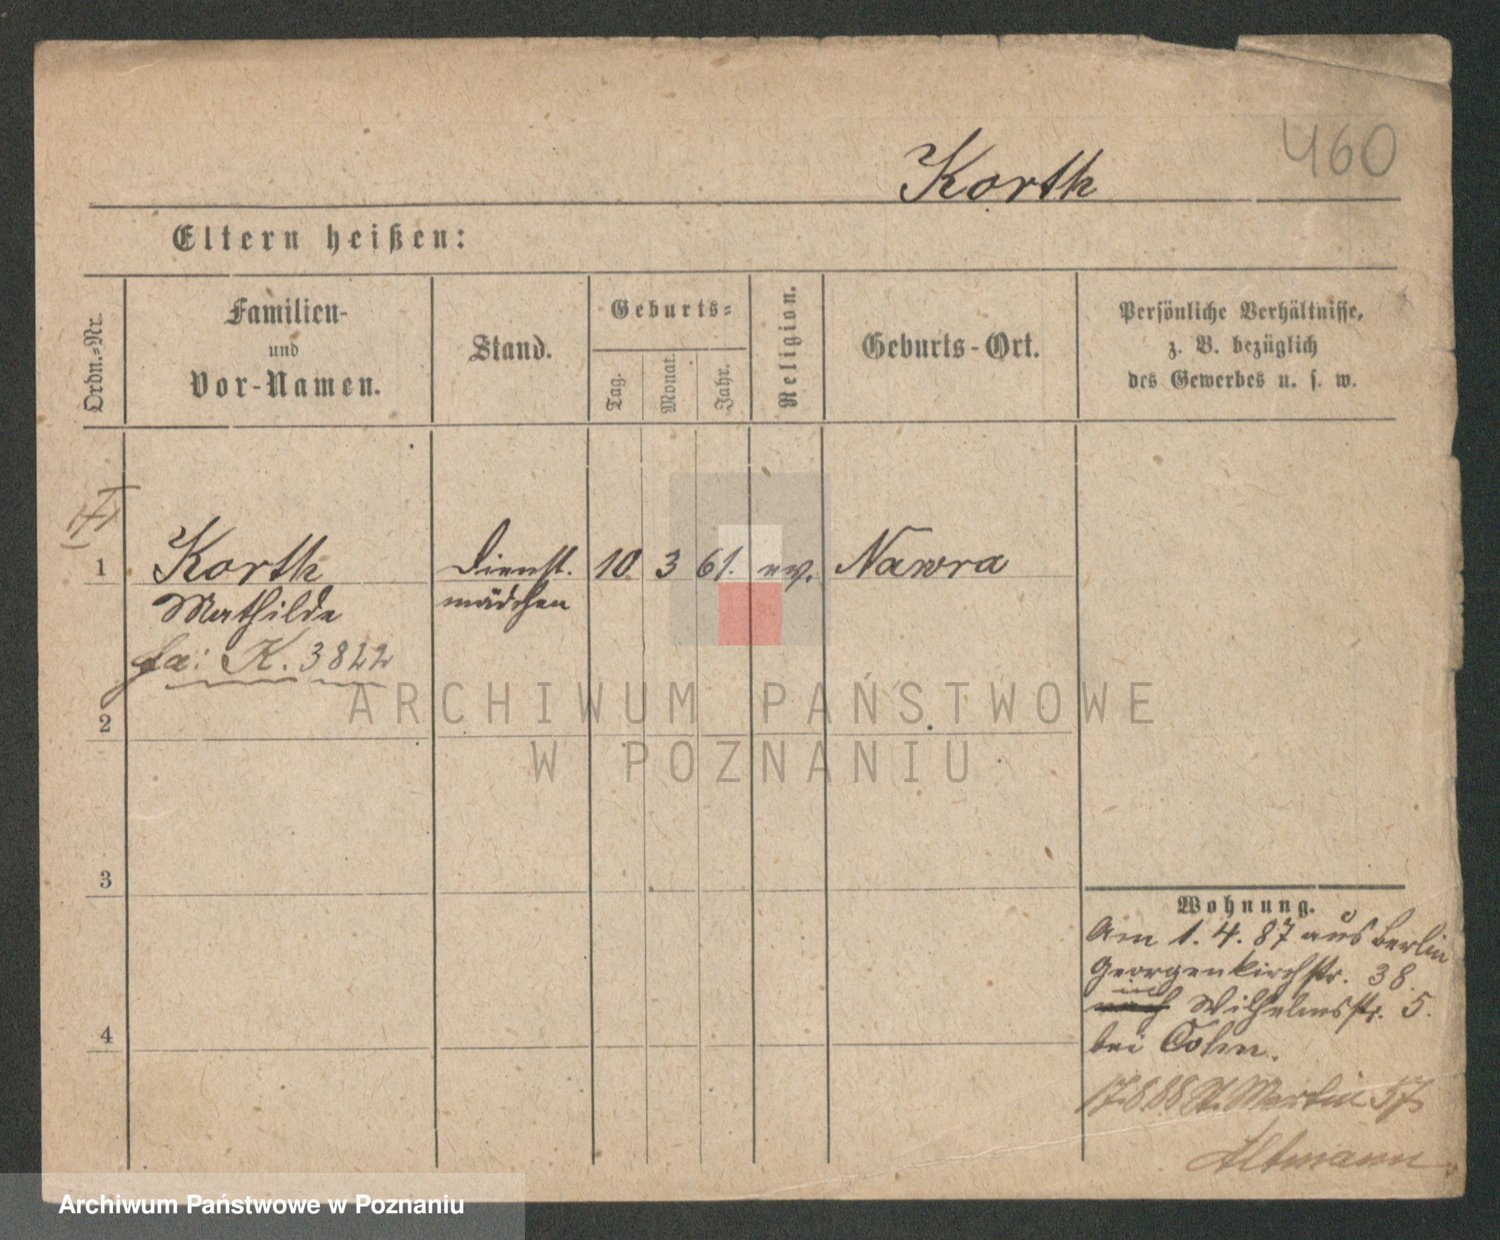 460
Korth
Eltern heißen:
Ordn.-Nr.
Familien-
und
Vor-Namen.
Stand.
Geburts-
Tag.
Monat.
Jahr.
Religion.
Geburts-Ort.
Persönliche Verhältnisse,
z. B. bezüglich
des Gewerbes u. s. w.
1 Korth Dienst. 10 3 61. ev. Nawra
Mathilde mädchen
fa: K. 3822
2
3
4
Wohnung.
Am 1. 4. 87 aus Berlin
Georgenkirchstr. 38.
in
nach Wilhelmsstr. 5.
bei Cohn.
17.8.88 St. Martin 57
Altmann
ARCHIWUM PAŃSTWOWE
W POZNANIU
Archiwum Państwowe w Poznaniu